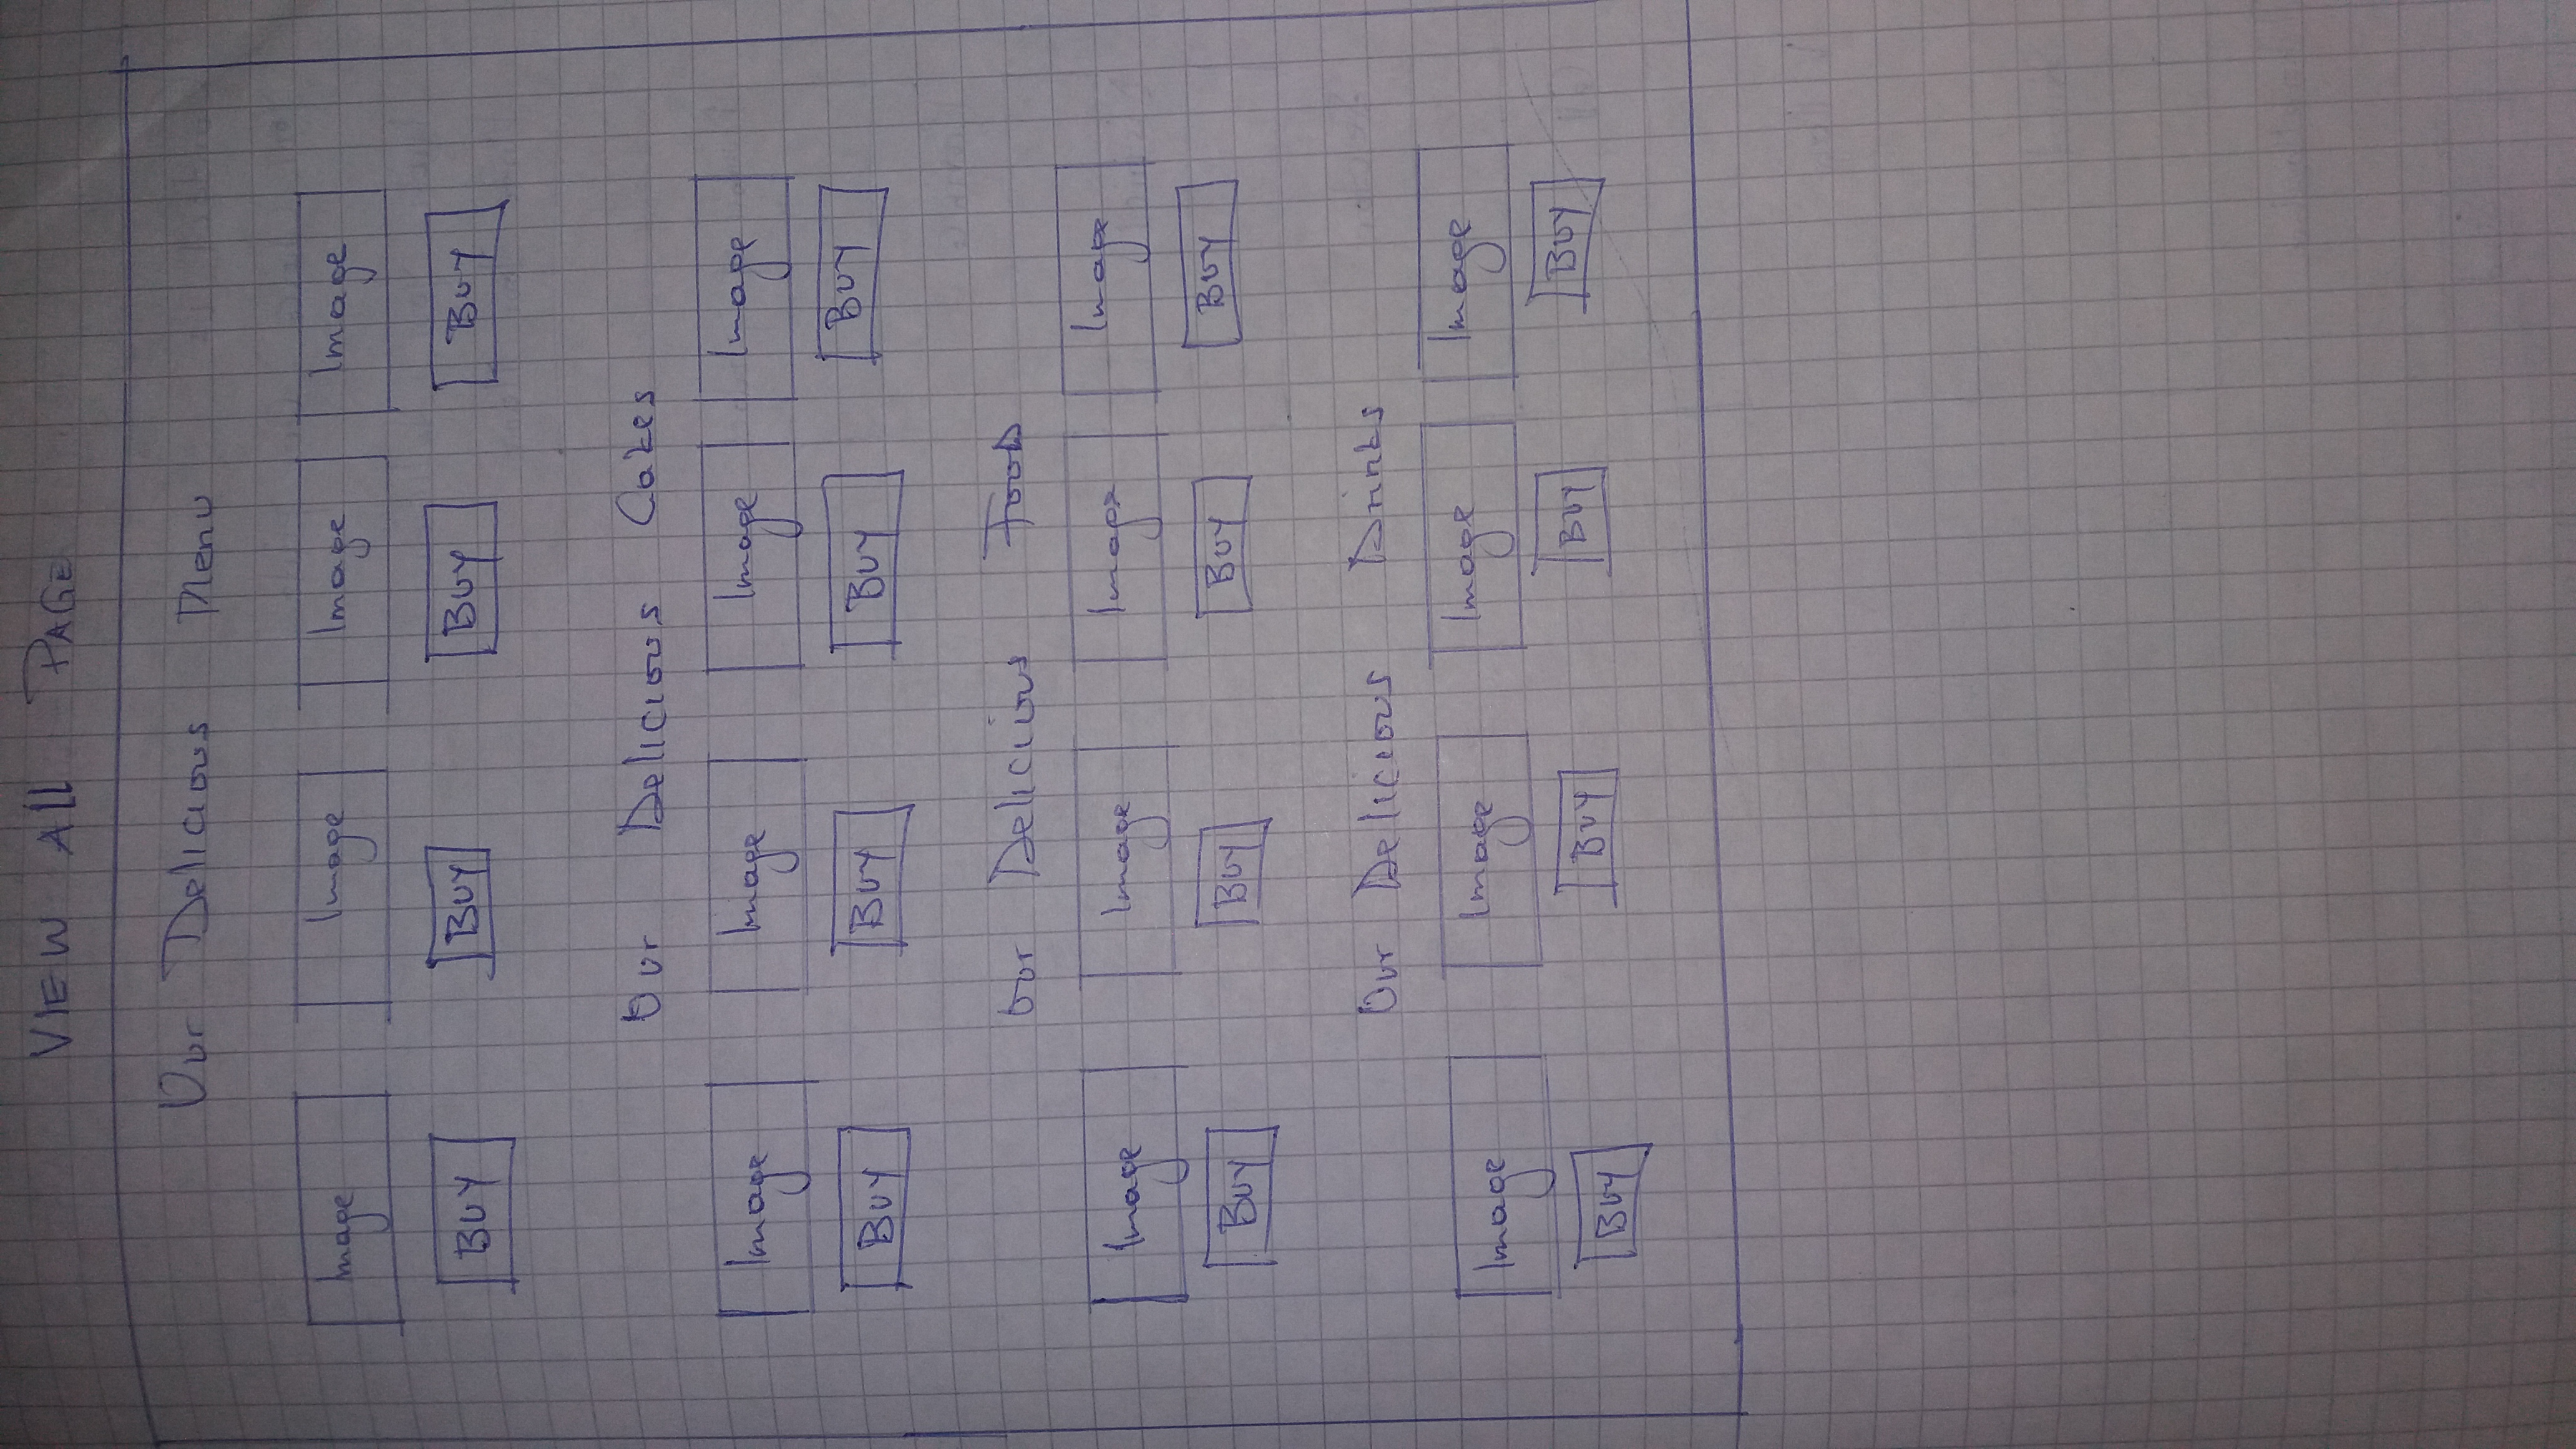 VIEW All PAGE
Our Delicious Menu
Image Image Image Image
BUY BUY BUY BUY
Our Delicious Cakes
Image Image Image Image
BUY BUY BUY BUY
Our Delicious Food
Image Image Image Image
BUY BUY BUY BUY
Our Delicious Drinks
Image Image Image Image
BUY BUY BUY BUY